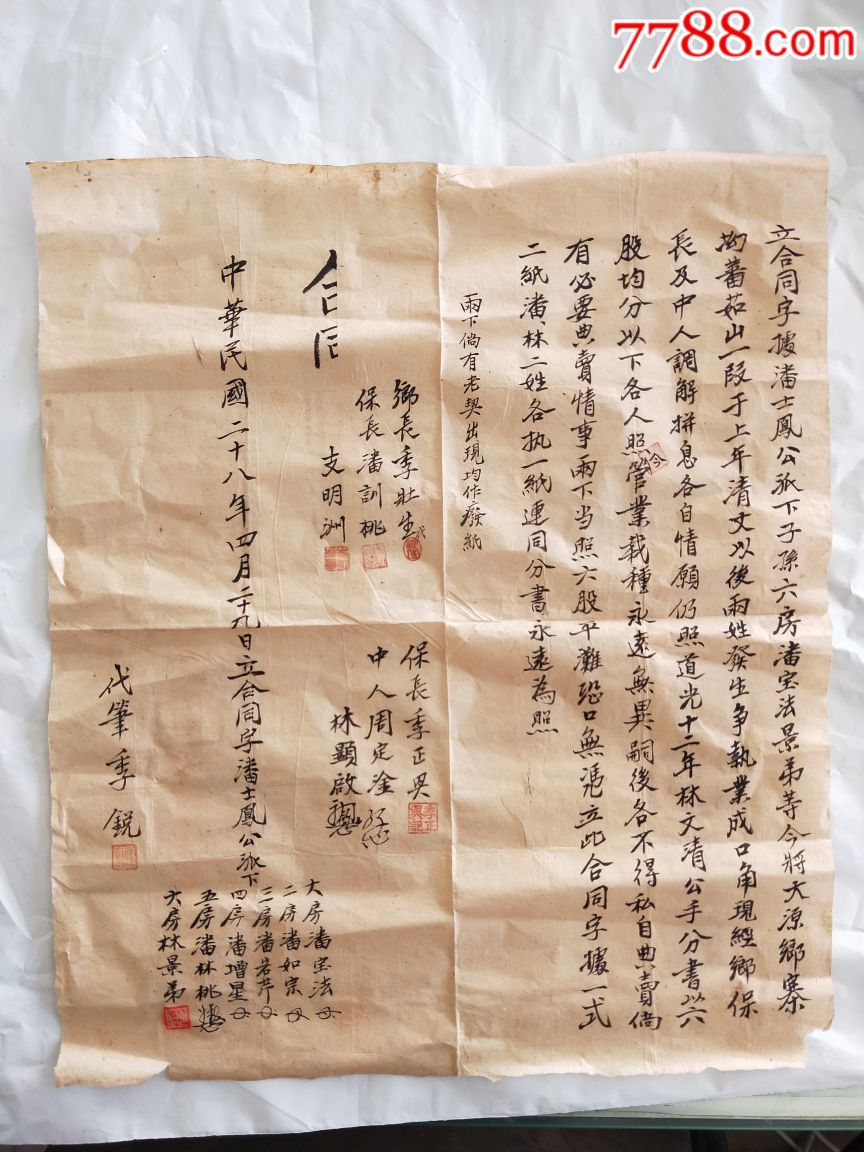 7788.com
立合同字據潘士鳳公派下子孫六房潘宝法景弟等今將大源鄉寨
拗蕃茹山一段于上年清丈以後兩姓發生争執業成口角現經鄉保
長及中人調解拼息各自情愿仍照道光十二年林文清公手分書以六
股均分以下各人照管業栽種永遠無異嗣後各不得私自典賣倘
有必要典賣情事兩下当照六股平灘恐口無馮立此合同字據一式
二紙潘、林二姓各执一紙連同分書永遠為照
兩下倘有老契出現均作廢紙
鄉長季壯生
保長潘訓桃
支明洲
保長季正吳
中人周定淦
林顕啟
中華民國二十八年四月二十九日立合同字潘士鳳公派下
大房潘宝法
二房潘如宗
三房潘岩芹
四房潘增星
五房潘林桃
六房林景弟
代筆季銳